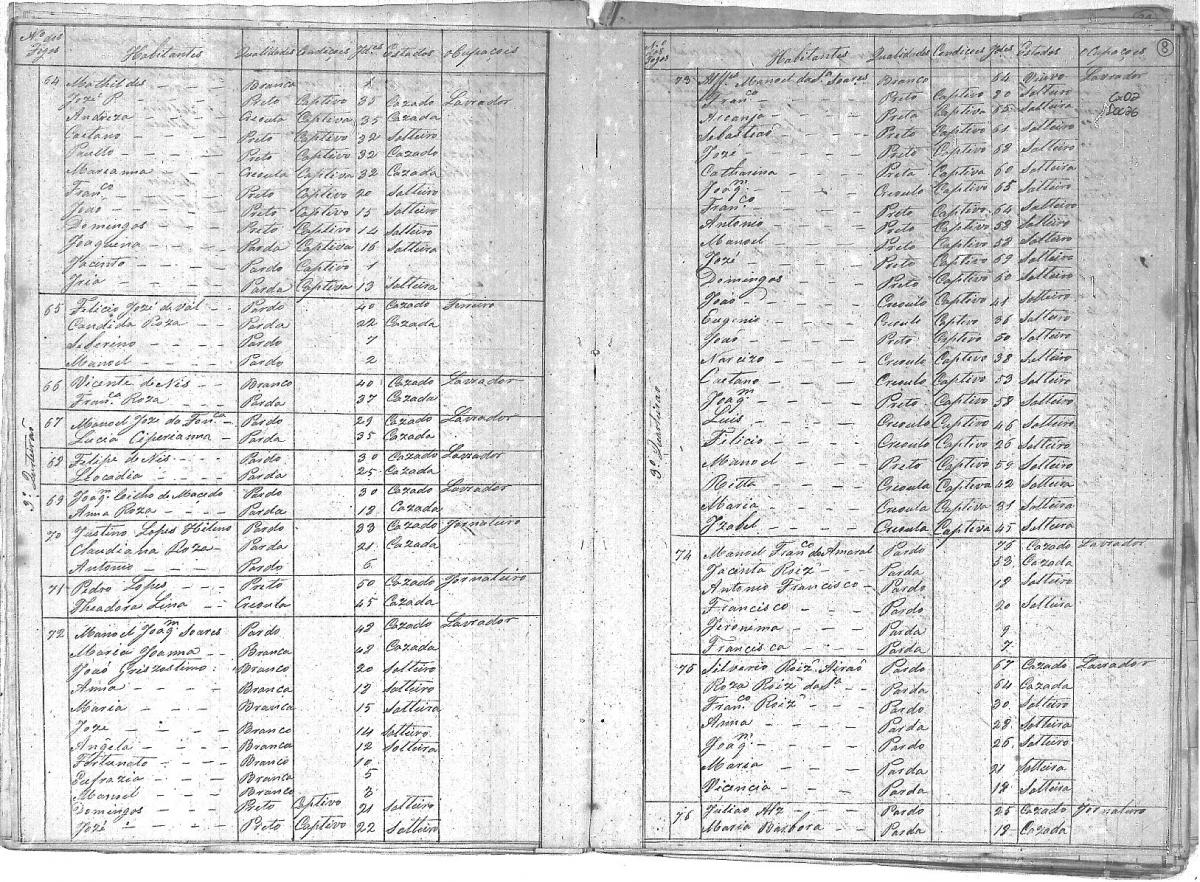 Nos dos Fogos Habitantes Qualidades Condições Id.es Estados Ocupações
3º Quarteirão
64 Mathildes Branca 1
Jozé P. Preto Captivo 35 Cazado Lavrador
Andreza Creoula Captiva 35 Cazada
Caetano Preto Captivo 32 Solteiro
Paullo Preto Captivo 32 Cazado
Marianna Creoula Captiva 32 Cazada
Fran.co Preto Captivo 20 Solteiro
João Preto Captivo 15 Solteiro
Domingos Preto Captivo 14 Solteiro
Joaquena Parda Captiva 16 Solteira
Jacinto Pardo Captivo 1
Iria Parda Captiva 13 Solteira
65 Felicio Jozé de Val Pardo 40 Cazado Ferreiro
Candida Roza Parda 22 Cazada
Seberino Pardo 7
Manoel Pardo 2
66 Vicente de Nis Branco 40 Cazado Lavrador
Fran.ca Roza Parda 37 Cazada
67 Manoel Joze da Fon.ca Pardo 29 Cazado Lavrador
Lucia Cipreianna Parda 35 Cazada
68 Felipe de Nis Pardo 30 Cazado Lavrador
Leocadia Parda 25 Cazada
69 Joaq.m Coelho de Macedo Pardo 30 Cazado Lavrador
Anna Roza Parda 18 Cazada
70 Justino Lopes Pardo 33 Cazado Jornaleiro
Claudiana Roza Parda 21 Cazada
Antonio Pardo 6
71 Pedro Lopes Preto 50 Cazado Jornaleiro
Theadora Lina Creoula 45 Cazada
72 Manoel Joaq.m Soares Pardo 48 Cazado Lavrador
Maria Joanna Branca 48 Cazada
João Grizostimo Branco 20 Solteiro
Anna Branca 18 Solteira
Maria Branca 15 Solteira
Joze Branco 14 Solteiro
Angela Branca 12 Solteira
Fortunato Branco 10
Eufrazia Branca 5
Manoel Branco 3
Domingos Preto Captivo 21 Solteiro
Jozé Preto Captivo 22 Solteiro
8
N.os dos Fogos Habitantes Qualidades Condições Id.es Estados Ocupações
3º Quarteirão
73 Alf.es Manoel da S.a Soares Branco 64 Viuvo Lavrador
Fran.co Preto Captivo 90 Solteiro
Arcanja Preta Captiva 65 Solteira
Sebastião Preto Captivo 61 Solteiro
Jozé Preto Captivo 68 Solteiro
Catharina Preta Captiva 60 Solteira
Joaq.m Creoulo Captivo 65 Solteiro
Fran.co Preto Captivo 64 Solteiro
Antonio Preto Captivo 58 Solteiro
Manoel Preto Captivo 53 Solteiro
Jozé Preto Captivo 69 Solteiro
Domingos Preto Captivo 60 Solteiro
João Creoulo Captivo 41 Solteiro
Eugenio Creoulo Captivo 36 Solteiro
João Preto Captivo 50 Solteiro
Narcizo Creoulo Captivo 38 Solteiro
Caetano Creoulo Captivo 53 Solteiro
Joaq.m Preto Captivo 58 Solteiro
Luis Creoulo Captivo 46 Solteiro
Filicio Creoulo Captivo 26 Solteiro
Manoel Preto Captivo 59 Solteiro
Ritta Creoula Captiva 42 Solteira
Maria Creoula Captiva 31 Solteira
Izabel Creoula Captiva 45 Solteira
74 Manoel Fran.co do Amaral Pardo 75 Cazado Lavrador
Jacinta Roiz Parda 53 Cazada
Antonio Francisco Pardo 18 Solteiro
Francisco Pardo 20 Solteiro
Jeronema Parda 9
Francisca Parda 7
75 Silverio Roiz Airão Pardo 67 Cazado Lavrador
Roza Roiz da S.a Parda 64 Cazada
Fran.co Roiz Pardo 30 Solteiro
Anna Parda 28 Solteira
Joaq.m Pardo 26 Solteiro
Maria Parda 21 Solteira
Vicencia Parda 18 Solteira
76 Julião Alz Pardo 25 Cazado Jornaleiro
Maria Barbora Parda 18 Cazada